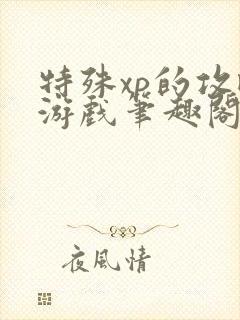 特殊xp的攻
游戏笔趣阁
夜風情